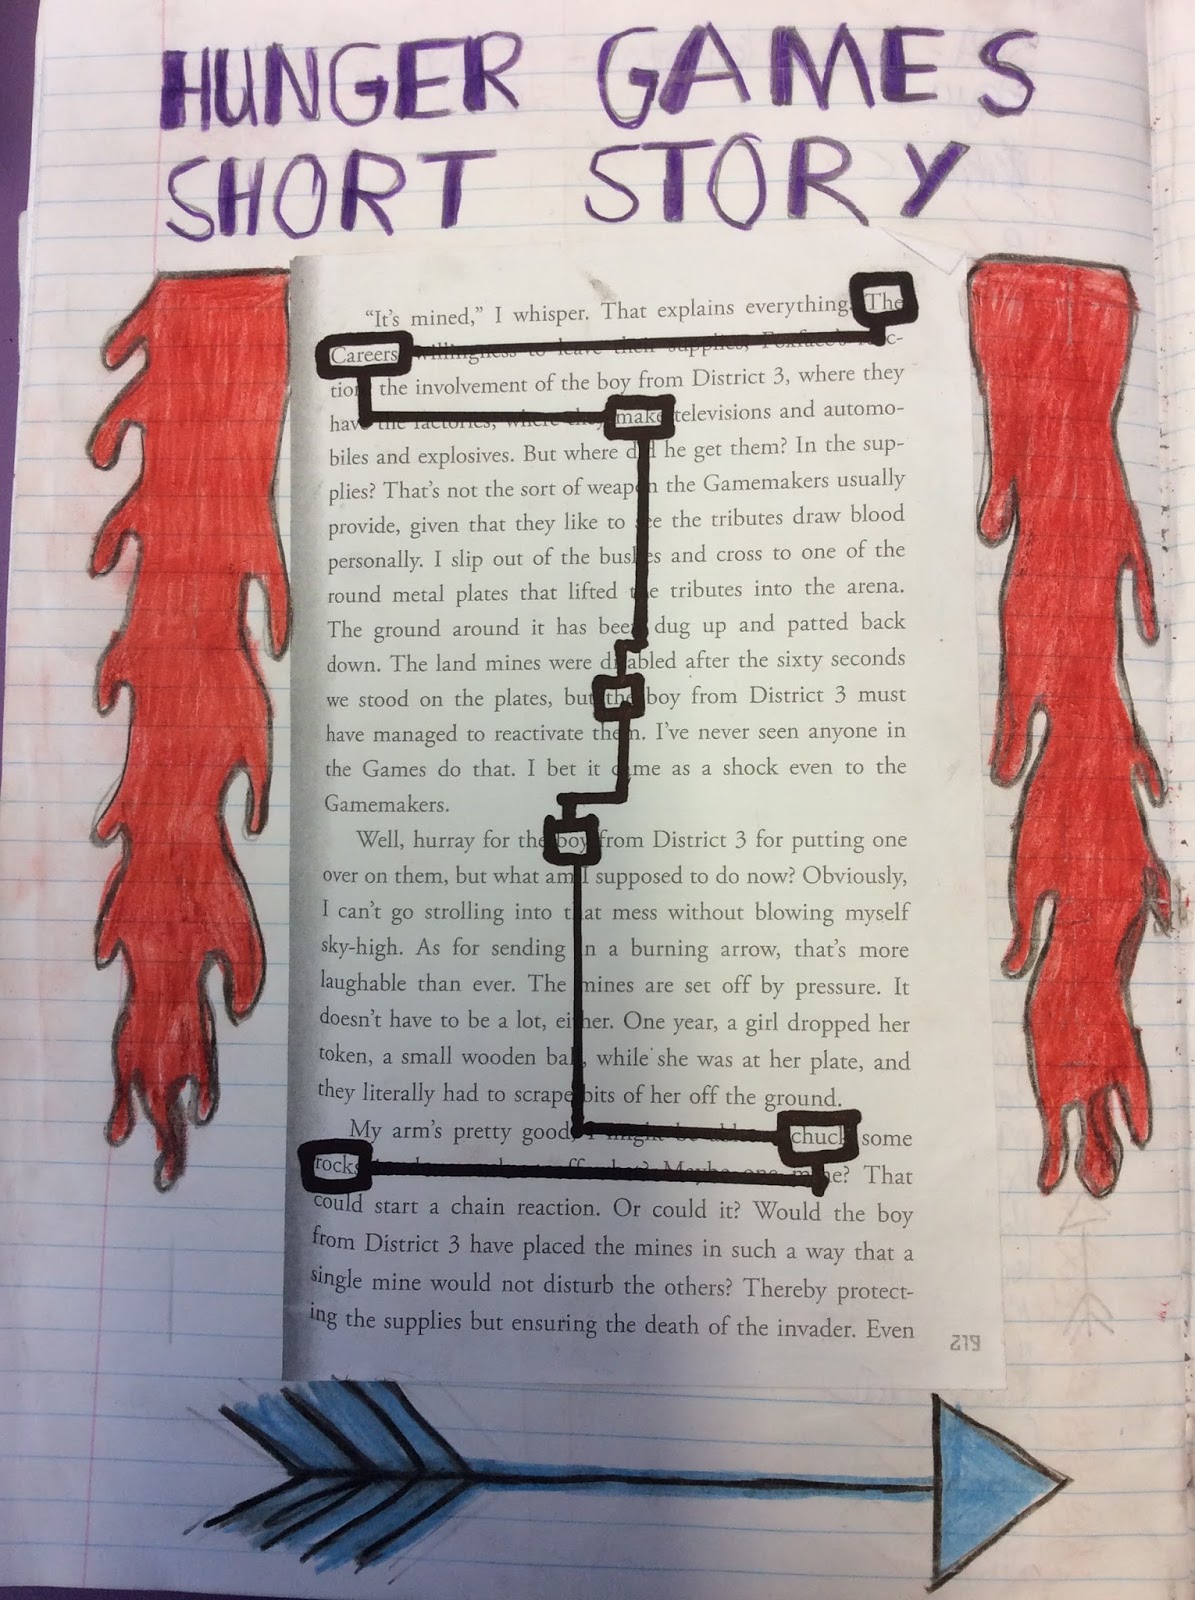 HUNGER GAMES
SHORT STORY
“It’s mined,” I whisper. That explains everything. The
Careers willingness to leave their supplies, Foxface’s reac-
tion, the involvement of the boy from District 3, where they
have the factories, where they make televisions and automo-
biles and explosives. But where did he get them? In the sup-
plies? That’s not the sort of weapon the Gamemakers usually
provide, given that they like to see the tributes draw blood
personally. I slip out of the bushes and cross to one of the
round metal plates that lifted the tributes into the arena.
The ground around it has been dug up and patted back
down. The land mines were disabled after the sixty seconds
we stood on the plates, but the boy from District 3 must
have managed to reactivate them. I’ve never seen anyone in
the Games do that. I bet it came as a shock even to the
Gamemakers.
Well, hurray for the boy from District 3 for putting one
over on them, but what am I supposed to do now? Obviously,
I can’t go strolling into that mess without blowing myself
sky-high. As for sending in a burning arrow, that’s more
laughable than ever. The mines are set off by pressure. It
doesn’t have to be a lot, either. One year, a girl dropped her
token, a small wooden ball, while she was at her plate, and
they literally had to scrape bits of her off the ground.
My arm’s pretty good, I might be able to chuck some
rocks off what? Maybe one mine? That
could start a chain reaction. Or could it? Would the boy
from District 3 have placed the mines in such a way that a
single mine would not disturb the others? Thereby protect-
ing the supplies but ensuring the death of the invader. Even
219